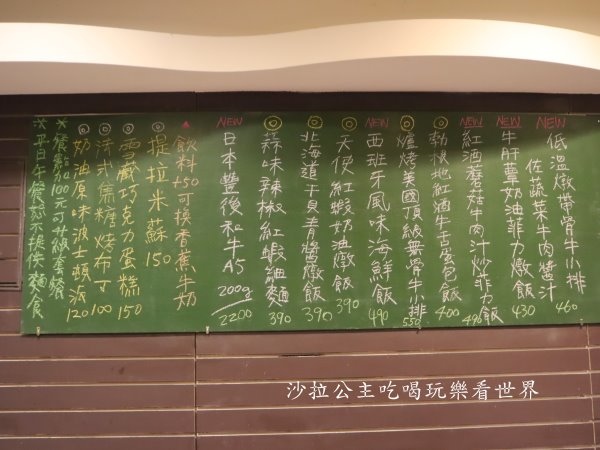 NEW
低溫燉帶骨牛小排
佐蔬菜牛肉醬汁 460
NEW
牛肝蕈奶油菲力燉飯 430
NEW
紅酒蘑菇牛肉汁炒菲力飯 490
勃根地紅酒牛舌蛋包飯 400
爐烤美國頂級無骨牛小排 550
NEW
西班牙風味海鮮飯 490
天使紅蝦奶油燉飯 390
北海道干貝青醬燉飯 390
蒜味辣椒紅蝦細麵 390
NEW
日本豐後和牛A5 200g 2200
飲料+50可換香蕉牛奶
提拉米蘇 150
雪藏巧克力蛋糕 150
法式焦糖烤布丁 100
奶油原味波士頓派 120
*餐點加100元可升級套餐
*平日午餐恕不提供麵食
沙拉公主吃喝玩樂看世界